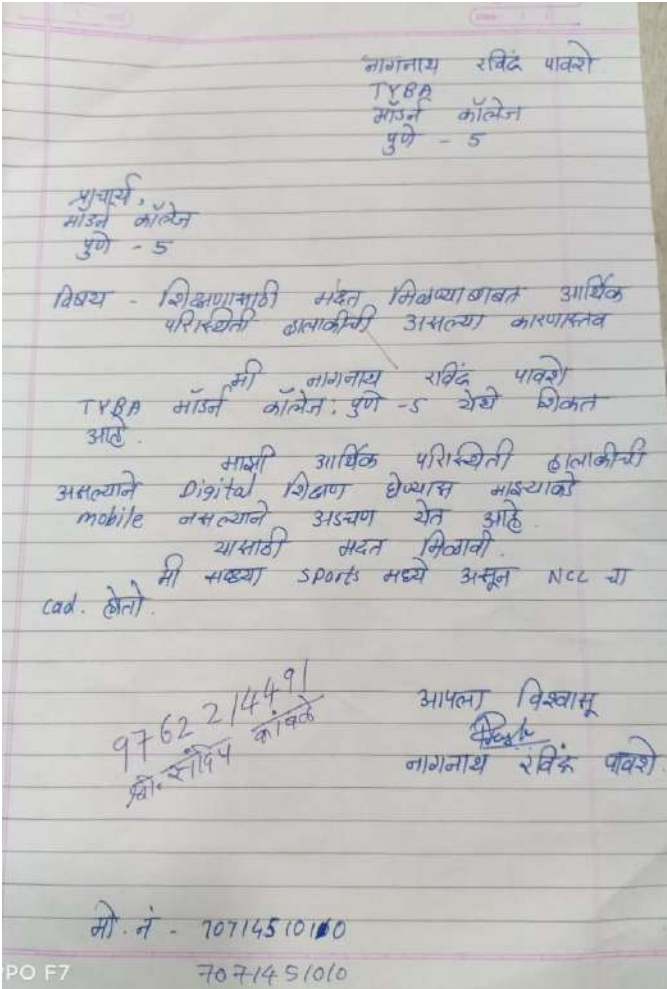 नागनाथ रविंद्र पावशे
TYBA
मॉडर्न कॉलेज
पुणे - 5
प्राचार्य,
मॉडर्न कॉलेज
पुणे - 5
विषय - शिक्षणासाठी मदत मिळण्याबाबत आर्थिक
परिस्थिती हालाकीची असल्या कारणास्तव
मी नागनाथ रविंद्र पावशे
TYBA मॉडर्न कॉलेज: पुणे -5 येथे शिकत
आहे.
माझी आर्थिक परिस्थिती हालाकीची
असल्याने Digital शिक्षण घेण्यास माझ्याकडे
mobile नसल्याने अडचण येत आहे.
यासाठी मदत मिळावी.
मी सध्या sports मध्ये असून NCC चा
cad. होतो.
9762214491
श्री. संदिप कांबळे
आपला विश्वासू
नागनाथ रविंद्र पावशे.
मो. नं - 7071451010
7071451010
PO F7